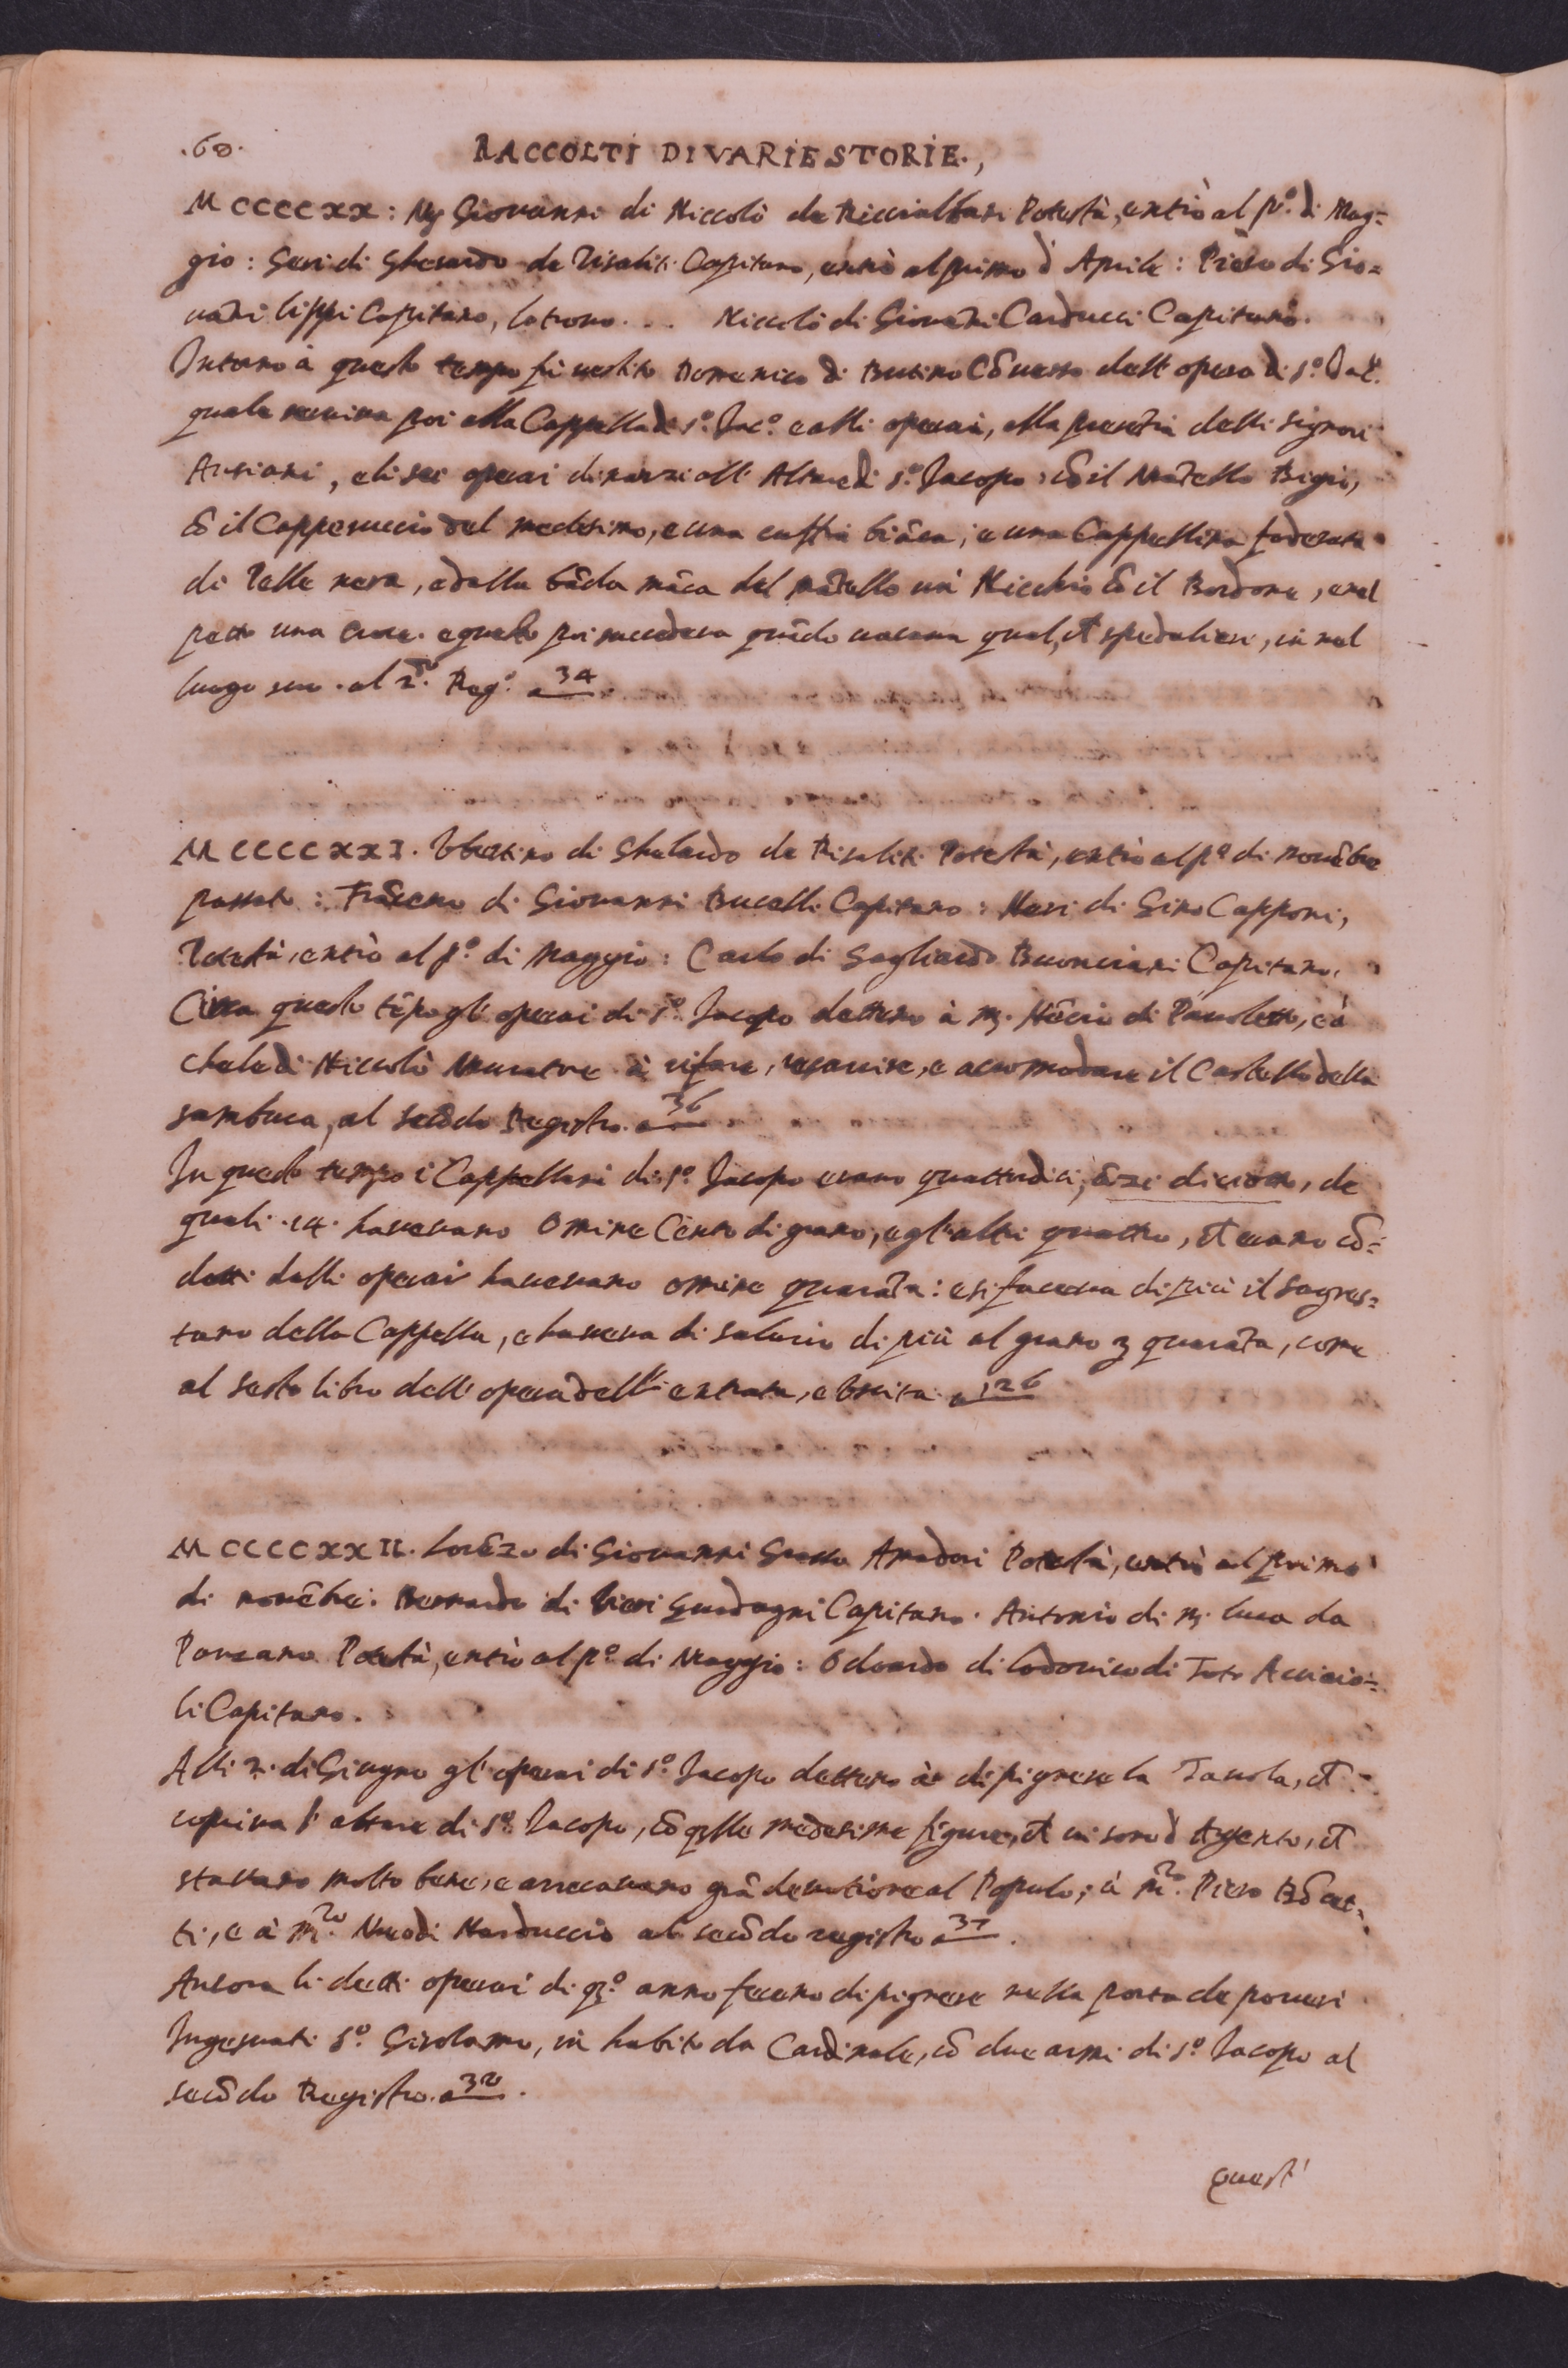 .60. RACCOLTI DI VARIE STORIE.,
MCCCCXX: Mr Giovanni di Niccolò de Riccialbani Potestà, entrò al p.º di Mag=
gio: Geri di Gherardo de Risaliti Capitano, entrò al primo d'Aprile: Piero di Gio=
vāni lippi Capitano, lo trovo... Niccolò di Giovāni Carducci Capitano.
Intorno à questo tempo fù vestito Domenico di Busino Cōverso dell'opera di s.º Iac.º
quale veniva poi alla Cappella di s.º Iac.º e alli operai, alla presētia delli signori
Ansiani, e li sei operai dinanzi all'Altare di s.º Iacopo, cō il Mātello Bigio,
cō il Capperuccio del medesimo, e una cuffia biāca, e una Cappellina foderata
di Pelle nera, e dalla bāda māca del mātello un Nicchio cō il Bordone, e nel
petto una Croce. e questo poi succedeva quādo vacava qual, ch̄ spedaliere, in nel
luogo suo. al 2.do Reg.º a 34
MCCCCXXI. Ubertino di Ghelardo de Risaliti Potestà, entrò al p.º di novēbre
passato: Frācesco di Giovanni Bucelli Capitano: Neri di Gino Capponi,
Potestà, entrò al p.º di Maggio: Carlo di Gagliardo Buonciani Capitano.
Circa questo tēpo gl'operai di s.º Iacopo dettero à m. Nēcio di Pauoletto, e à
Chele di Niccolò Muratore à rifare, risarcire, e accomodare il Castello della
sambuca, al secōdo Registro a 36
In questo tempo i Cappellani di s.º Iacopo erano quattordici, āzi diciotto, de
quali .14. havevano Omine Cento di grano, e gl'altri quattro, ch̄ erano cō=
dotti dalli operai havevano omine quarāta: e si faceva di più il sagres=
tano della Cappella, e haveva di salario di più al grano ʒ quarāta, come
al sesto libro dell'opera dell'entrata, e Uscita a 126
MCCCCXXII. Lorēzo di Giovanni Grasso Amadori Potestà, entrò al primo
di novēbre: Bernardo di Vieri Guadagni Capitano. Antonio di m. luca da
Panzano Potestà, entrò al p.º di Maggio: Odoardo di lodovico di Acciaio=
li Capitano.
Alli 2. di Giugno gl'operai di s.º Iacopo dettero à dipignere la Tavola, ch̄
copriva l'altare di s.º Iacopo, cō q̄lle medesime figure, ch̄ vi sono d'Argento, ch̄
stavano molto bene, e arrecavano grā devotione al Populo; à m.ro Piero
ti, e à m.ro di Narduccio al secōdo registro a 37.
Ancora li detti operai di q.º anno fecero dipignere nella porta de poveri
Ingesuati s.º Girolamo, in habito da Cardinale, cō due armi di s.º Iacopo al
secōdo Registro. a 38.
Questi